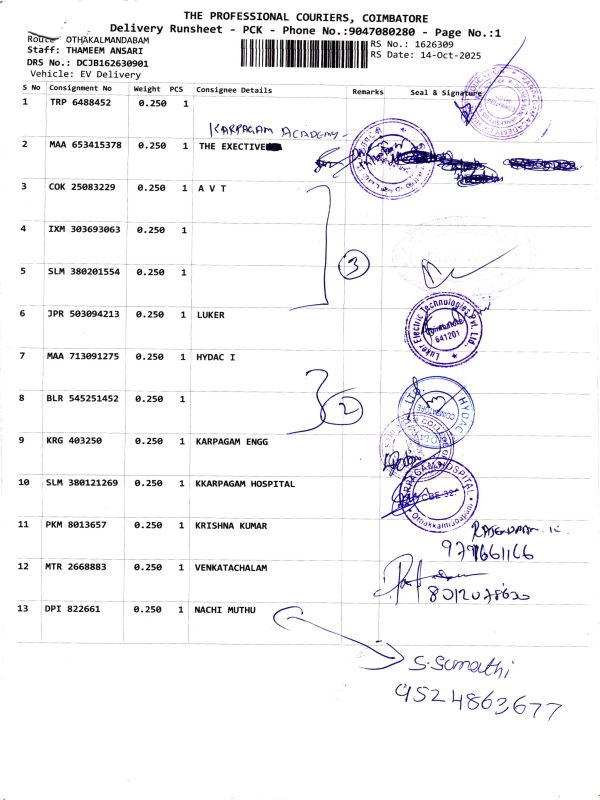 THE PROFESSIONAL COURIERS, COIMBATORE
Delivery Runsheet - PCK - Phone No.:9047080280 - Page No.:1
Route OTHAKALMANDABAM
Staff: THAMEEM ANSARI
DRS No.: DCJB162630901
Vehicle: EV Delivery
RS No.: 1626309
RS Date: 14-Oct-2025
S No Consignment No Weight PCS Consignee Details Remarks Seal & Signature
1 TRP 6488452 0.250 1
KARPAGAM ACADEMY
2 MAA 653415378 0.250 1 THE EXECTIVE
3 COK 25083229 0.250 1 A V T
4 IXM 303693063 0.250 1
5 SLM 380201554 0.250 1
3
6 JPR 503094213 0.250 1 LUKER
Luker Electric Technologies Pvt. Ltd.
641201
7 MAA 713091275 0.250 1 HYDAC I
8 BLR 545251452 0.250 1
2
HYDAC
COIMBATORE
9 KRG 403250 0.250 1 KARPAGAM ENGG
COLLEGE OF
10 SLM 380121269 0.250 1 KKARPAGAM HOSPITAL
KARPAGAM HOSPITAL
CBE-32
Othakkalmandapam
11 PKM 8013657 0.250 1 KRISHNA KUMAR
12 MTR 2668883 0.250 1 VENKATACHALAM
13 DPI 822661 0.250 1 NACHI MUTHU
S. Sumathi
9524863677